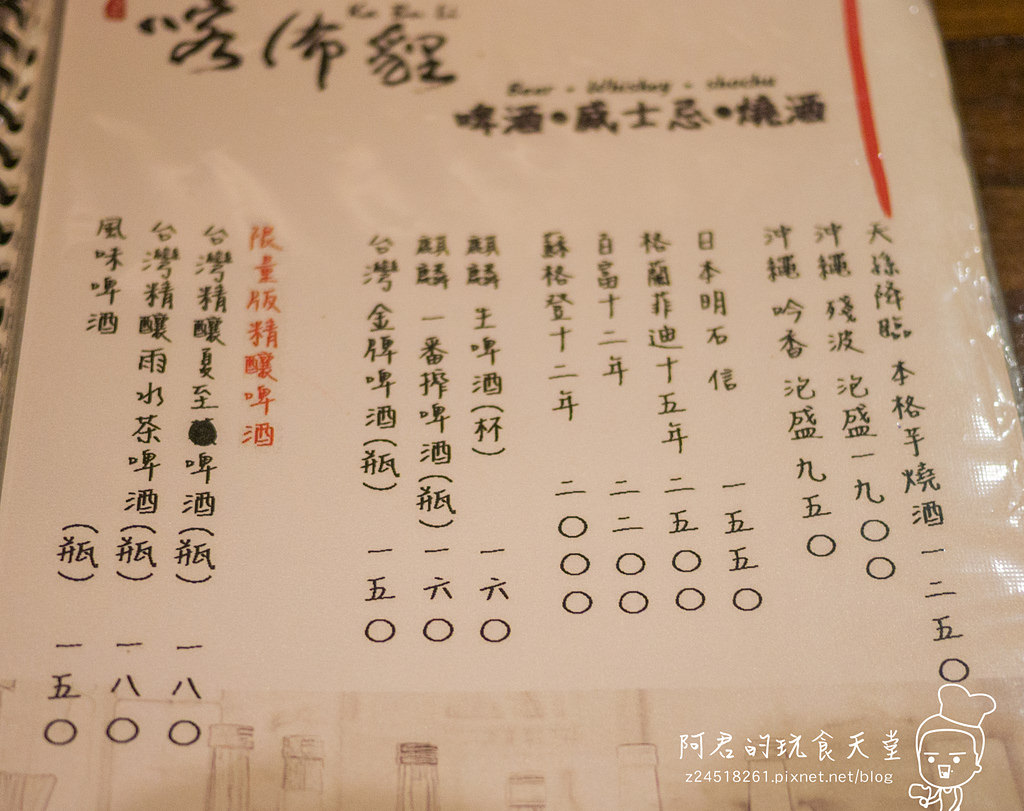 喀佈貍
Beer · Whiskey · shochu
啤酒•威士忌•燒酒
天孫降臨 本格芋燒酒 一二五〇
沖繩 殘波 泡盛 一九〇〇
沖繩 吟香 泡盛 九五〇
日本明石 信 一五五〇
格蘭菲迪十五年 二五〇〇
百富十二年 二二〇〇
蘇格登十二年 二〇〇〇
麒麟 生啤酒(杯) 一六〇
麒麟 一番搾啤酒(瓶) 一六〇
台灣 金牌啤酒(瓶) 一五〇
限量版精釀啤酒
台灣精釀夏至啤酒(瓶) 一八〇
台灣精釀雨水茶啤酒(瓶) 一八〇
風味啤酒 (瓶) 一五〇
阿君的玩食天堂
z24518261.pixnet.net/blog